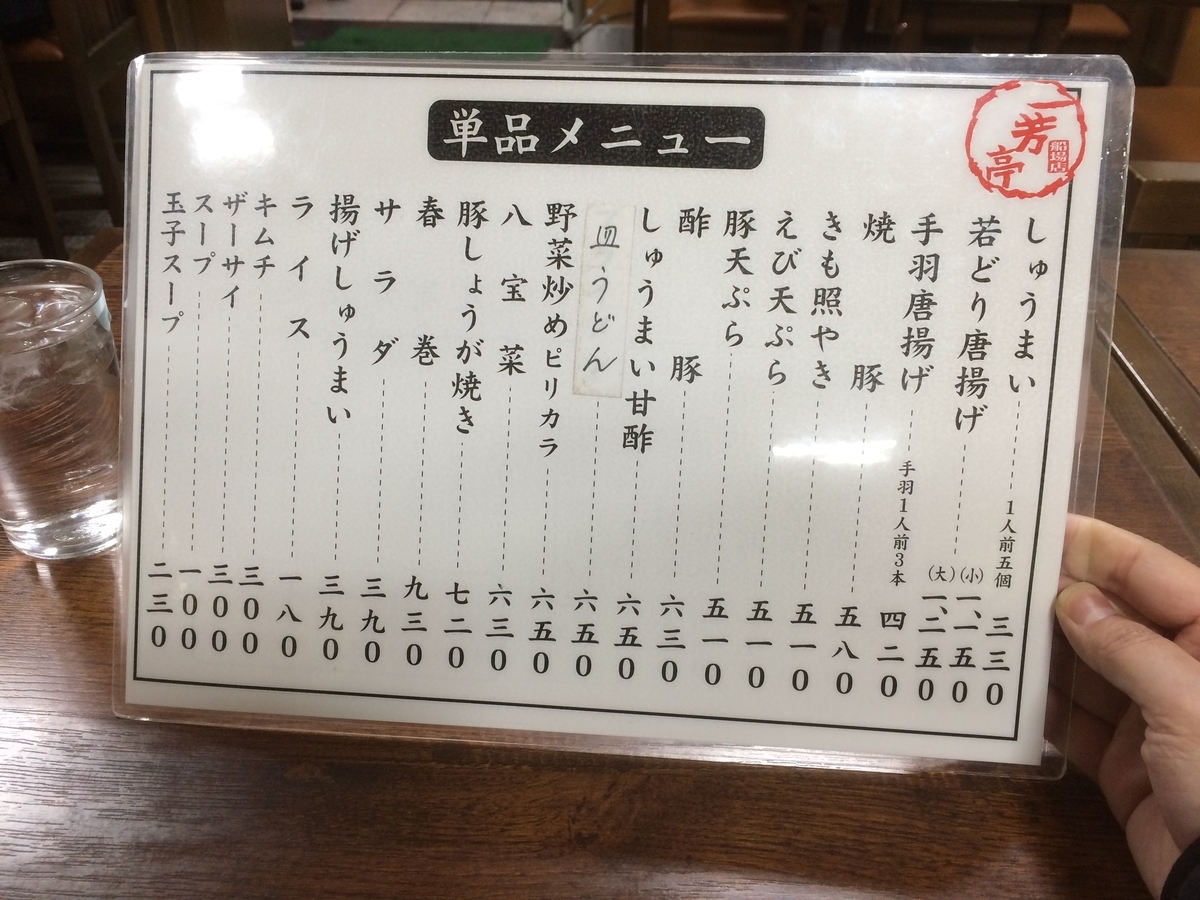 単品メニュー
一芳亭
船場店
しゅうまい 1人前五個 三三0
若どり唐揚げ (小) 一、一五0
(大) 一、二五0
手羽唐揚げ 手羽1人前3本 四二0
焼豚 五八0
きも照やき 五一0
えび天ぷら 五一0
豚天ぷら 五一0
酢豚 六三0
しゅうまい甘酢 六五0
皿うどん 六五0
野菜炒めピリカラ 六五0
八宝菜 六三0
豚しょうが焼き 七二0
春巻 九三0
サラダ 三九0
揚げしゅうまい 三九0
ライス 一八0
キムチ 三00
ザーサイ 三00
スープ 一00
玉子スープ 二三0